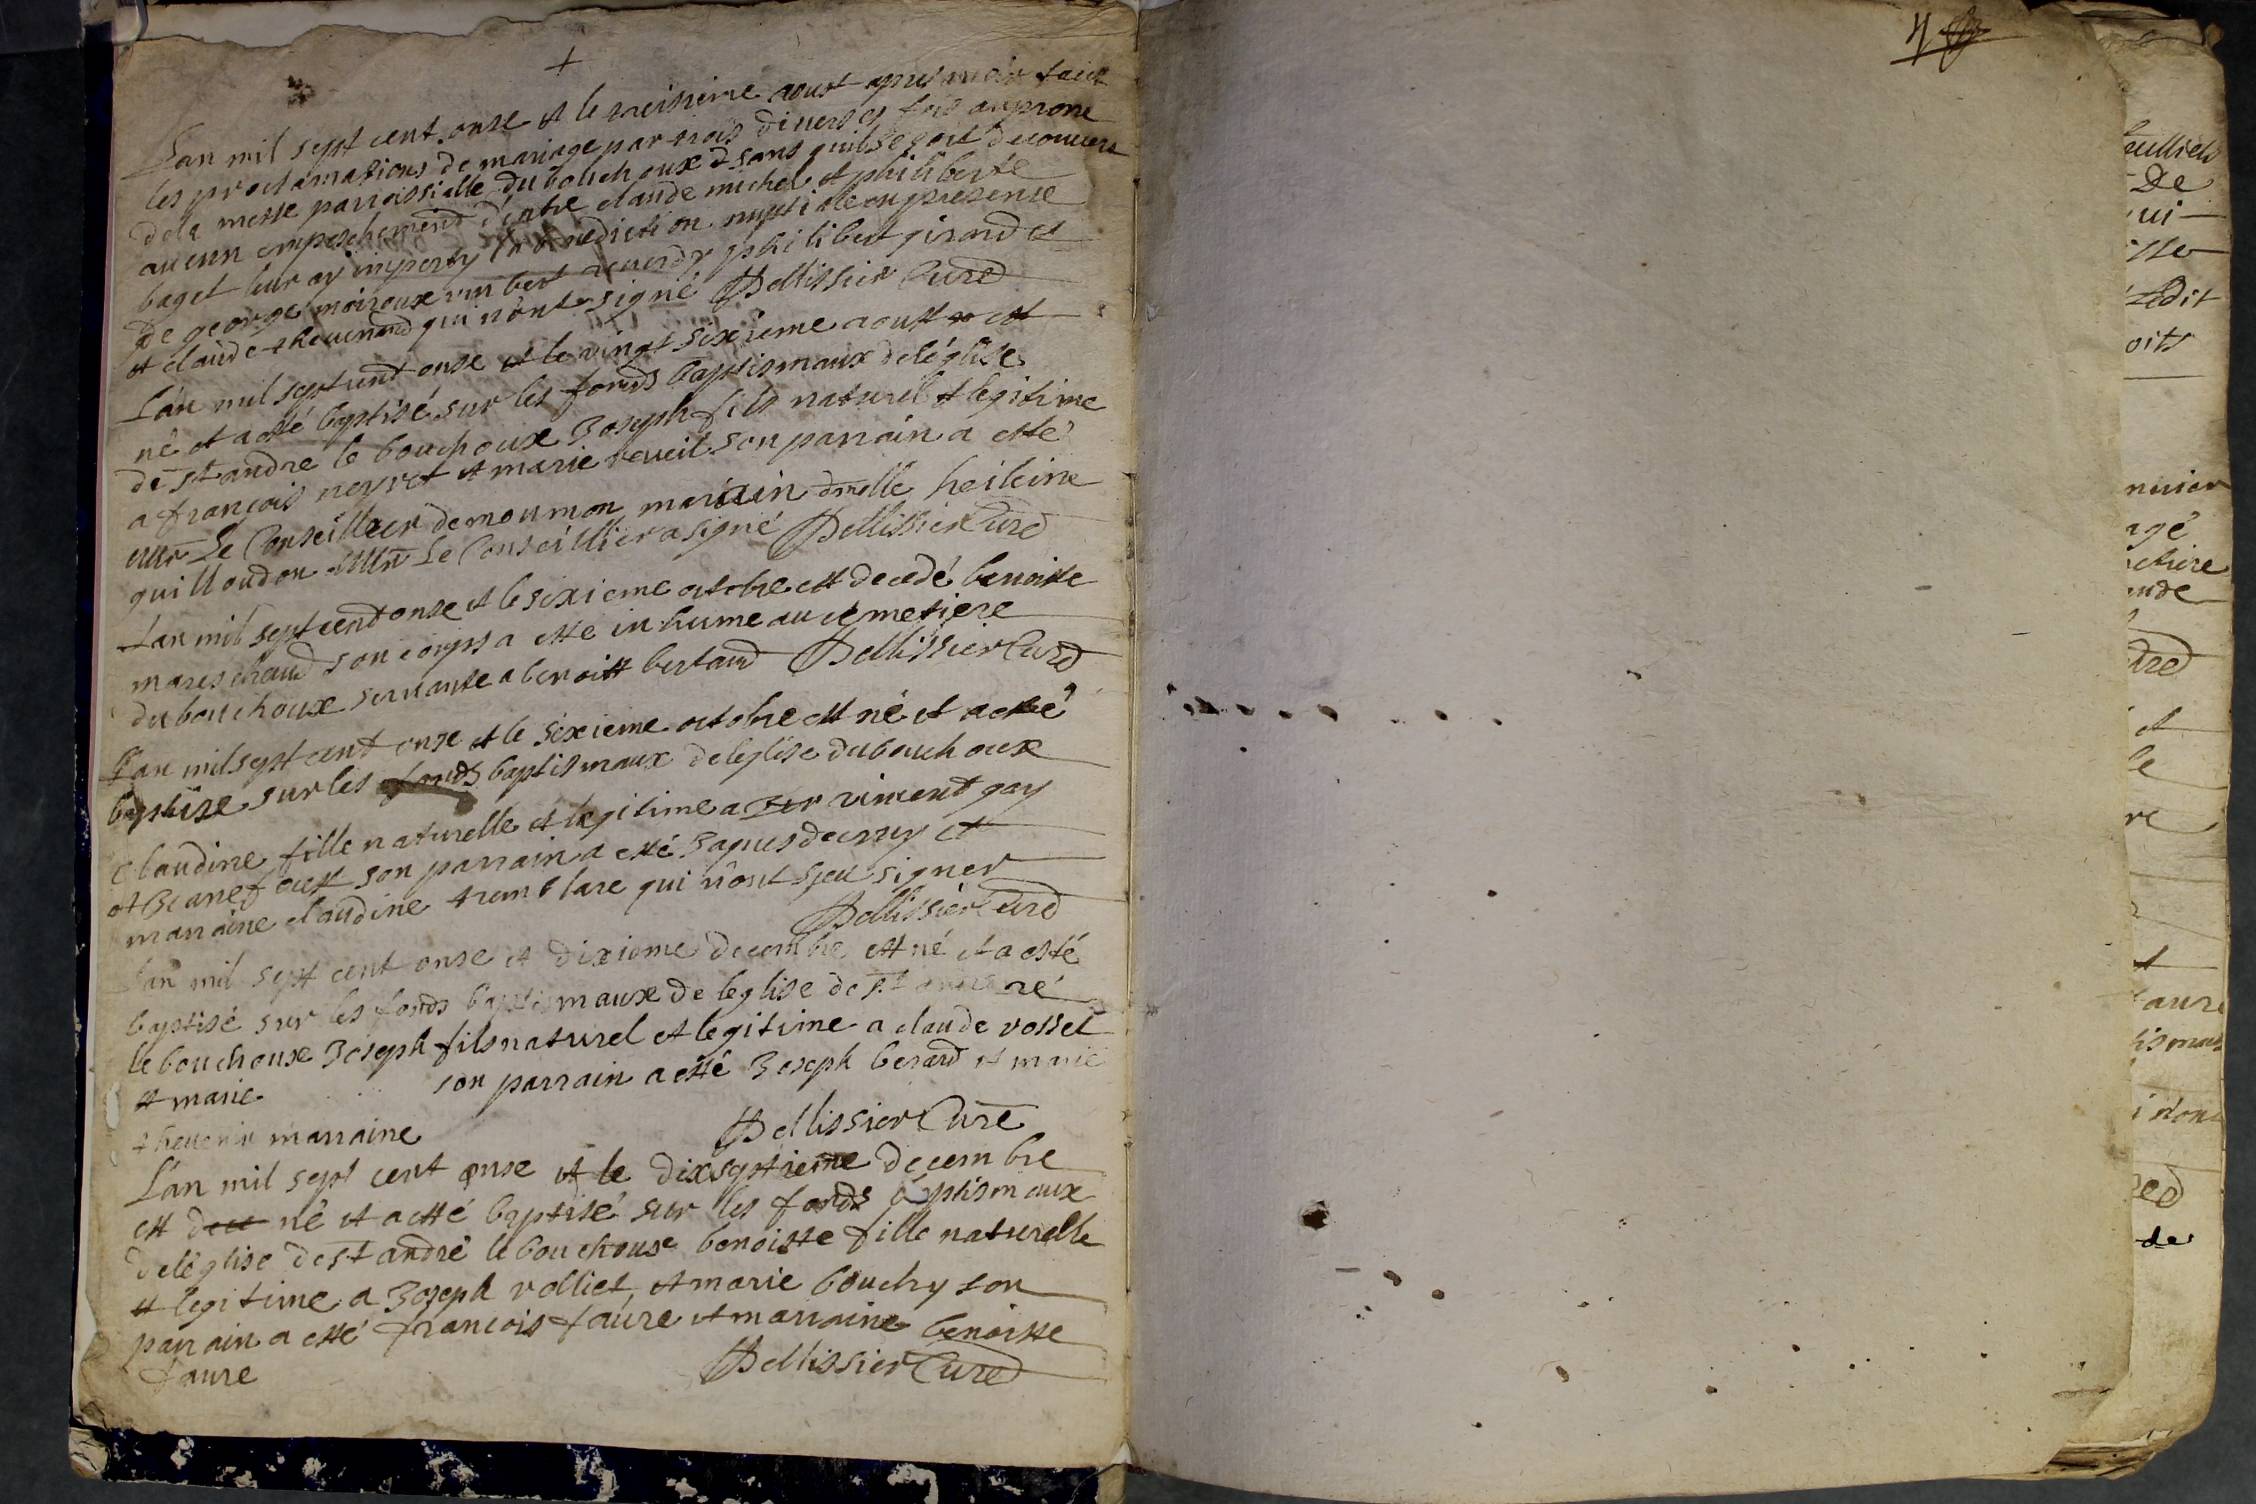 +
Lan mil sept cent onse et le treisieme aoust apres avoir faict
les proclamations de mariage par trois diverses fois au prone
de la messe parroissielle du bouchoux et sans quil se soit decouvert
aucun empeschement dentre claude michel et philiberte
baget leur ay imperty la benediction nuptiale en presence
de george moiroux philibert girard et
et claude thevenard qui nont signé Pellissier Curé
Lan mil sept cent onse et le vingt sixieme aoust est
né et a esté baptisé sur les fonds baptismaux de léglise
de st andre le bouchoux Joseph fils naturel et legitime
a françois neyret et marie reveil son parrain a esté
Mr Le Conseiller de moumon dmelle heileine
quilloudon Mr Le Conseillier a signé Pellissier Curé
Lan mil sept cent onse et le sixieme octobre est decedé benoiste
mareschaud son corps a esté inhume au cemetiere
du bouchoux servante a benoist bertaud Pellissier Curé
Lan mil sept cent onse et le sixieme octobre est né et a esté
baptisé sur les fonds baptismaux de leglise du bouchoux
Claudine fille naturelle et legitime a vincent gay
et son parrain a esté Jaques et
marraine claudine tremblare qui nont sceu signer
Pellissier Curé
Lan mil sept cent onse et dixieme decembre est né et a esté
baptisé sur les fonds baptismaux de leglise de st andré
le bouchoux Joseph fils naturel et legitime a claude rosset
et marie son parrain a esté Joseph berard et marie
thevenin marraine Pellissier Curé
L'an mil sept cent onse et le dixseptieme decembre
est né et a esté baptisé sur les fonds baptismaux
de léglise de st andré le bouchoux benoiste fille naturelle
et legitime a Joseph volliet et marie bouchy son
parrain a esté francois faure et marraine benoiste
faure Pellissier Curé
4
De
ui
edit
oits
agé
de